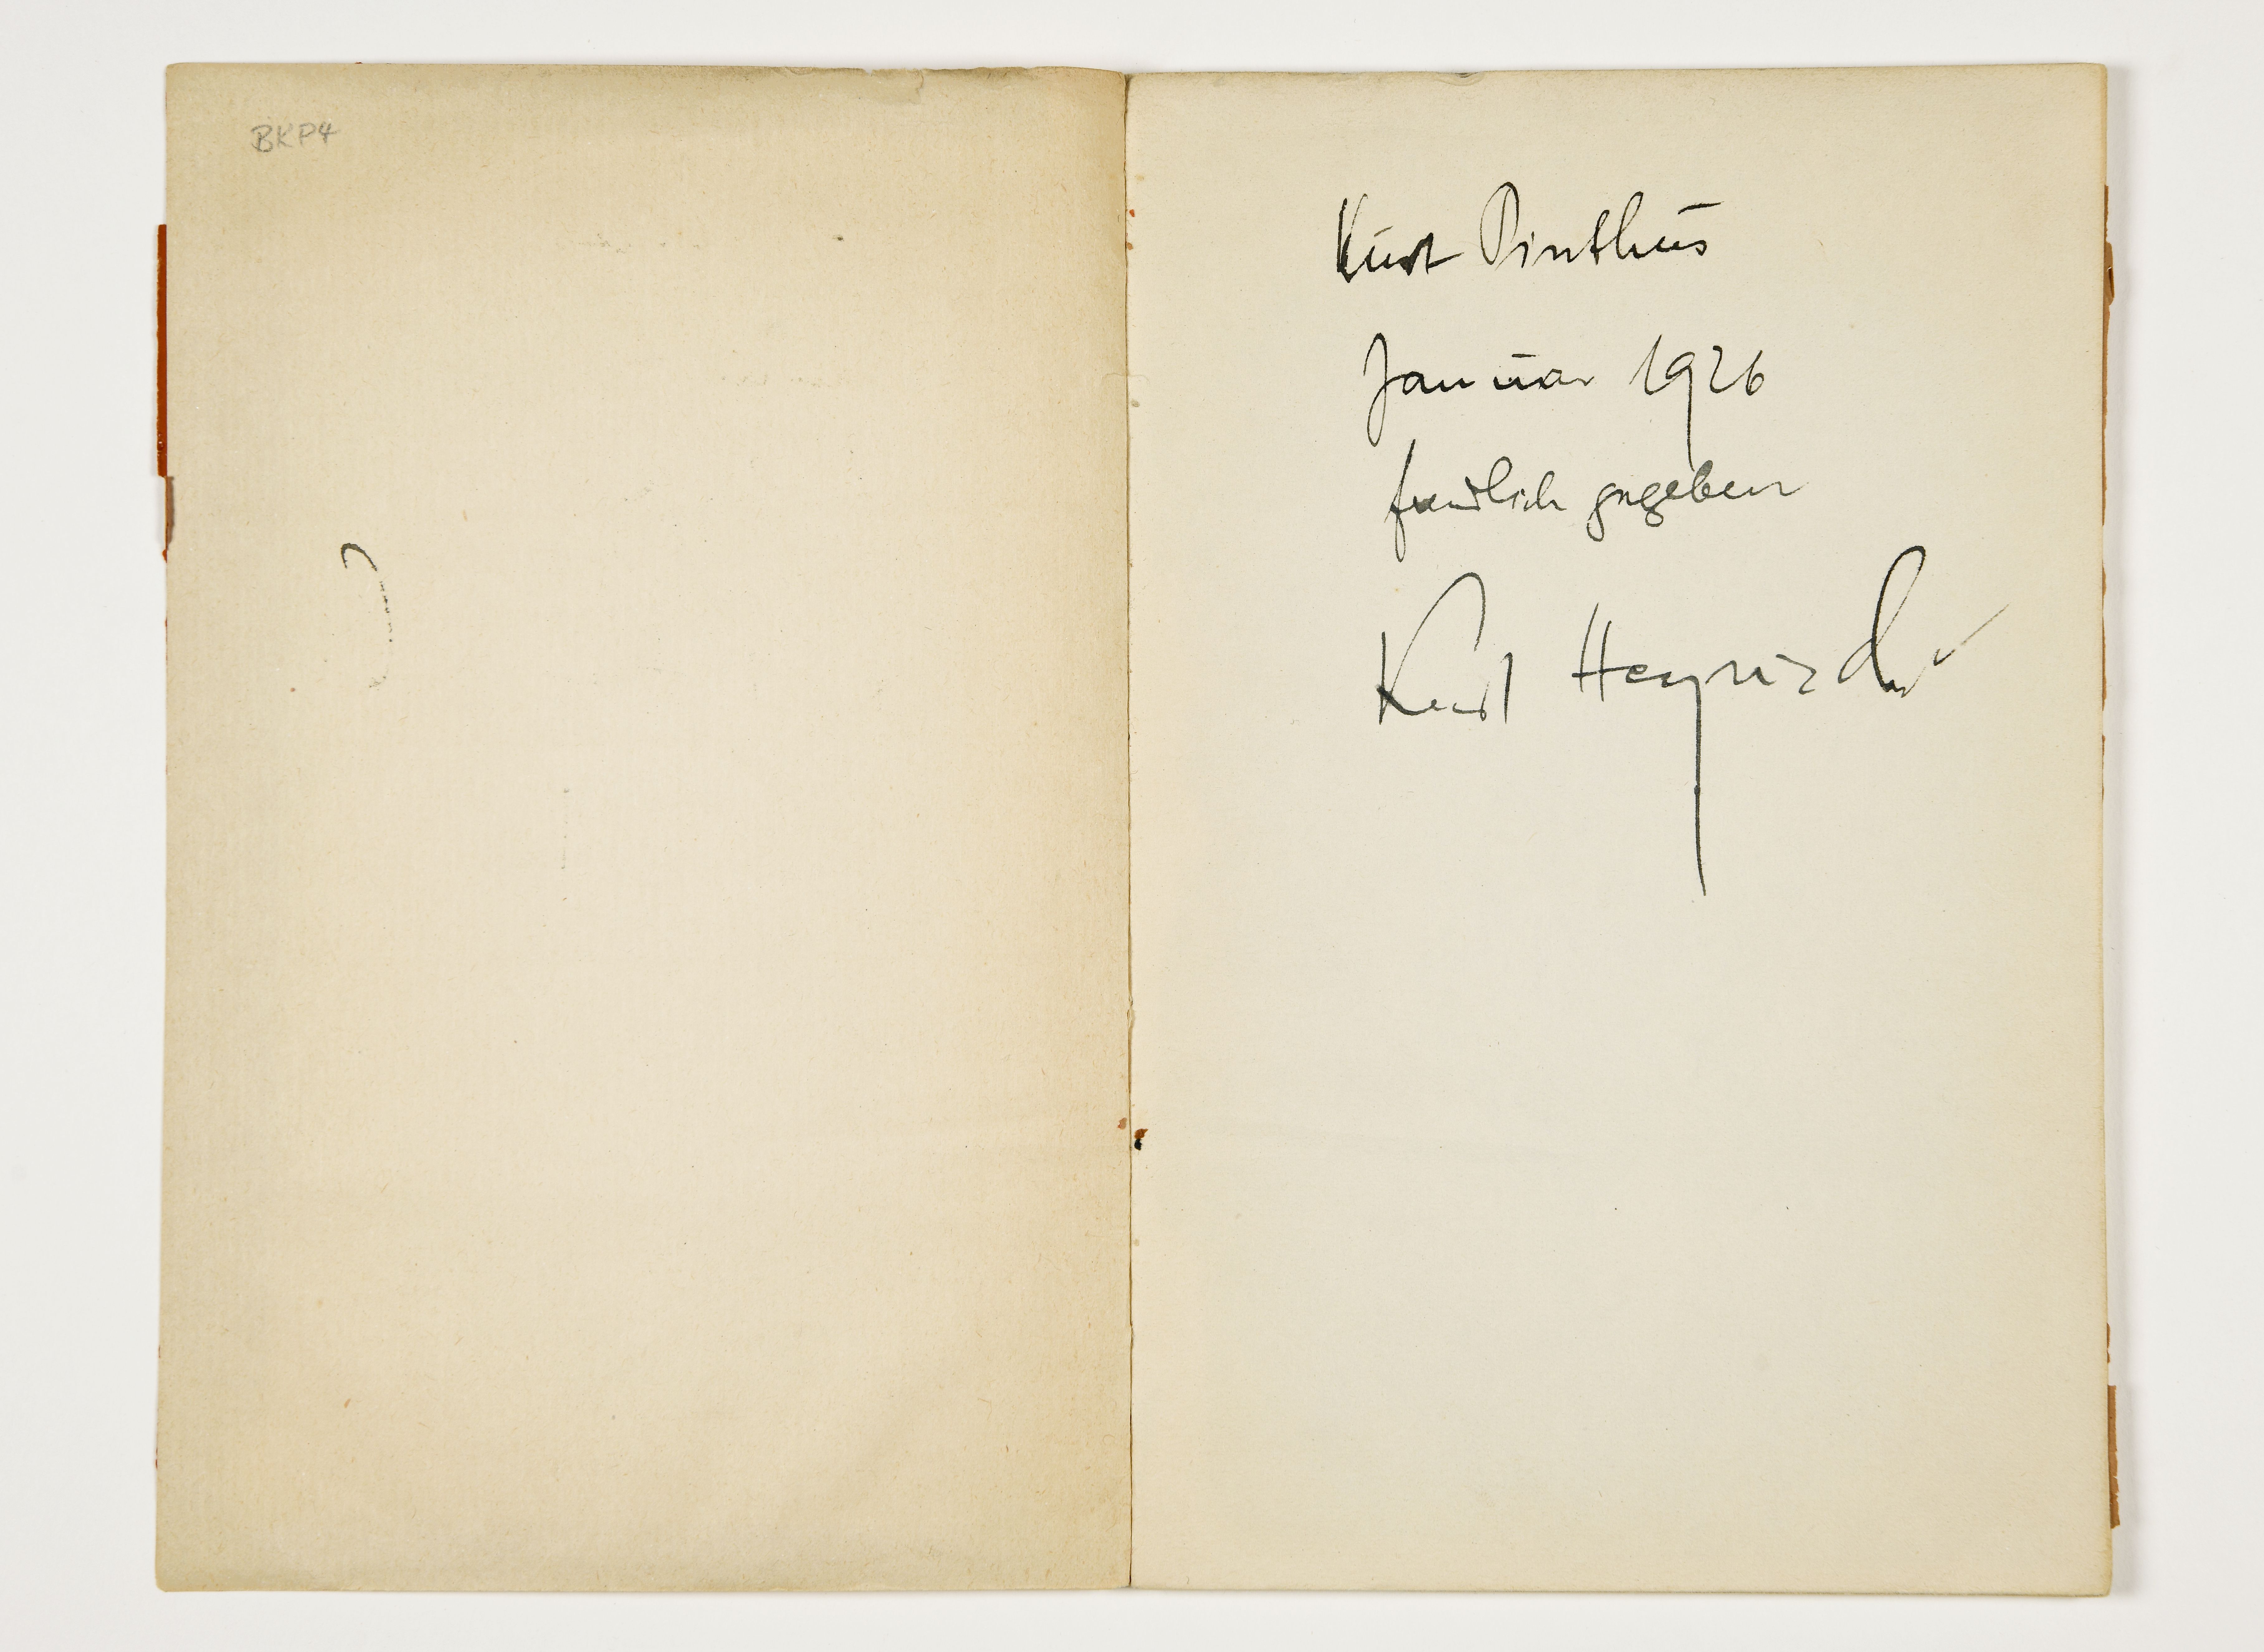 BKP4
Kurt Pinthus
Januar 1926
freundlich gegeben
Kurt Heynicke